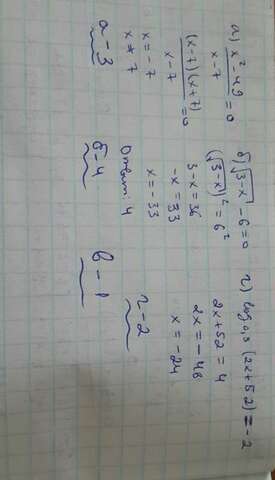 а) x² - 49 / x - 7 = 0
(x-7)(x+7) / x-7 = 0
x = -7
x ≠ 7
а - 3
б) √3-x - 6 = 0
(√3-x)² = 6²
3-x = 36
-x = 33
x = -33
Ответ: 4
б - 4
в - 1
г) log₀,₅ (2x+52) = -2
2x + 52 = 4
2x = -48
x = -24
г - 2